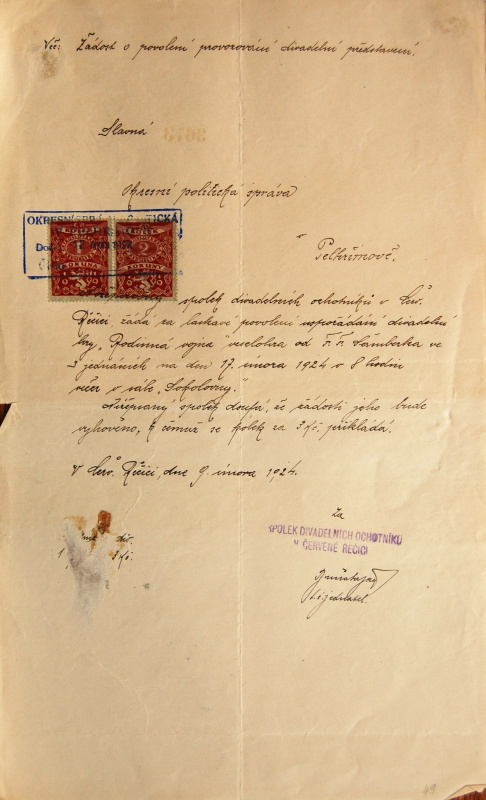 Věc: Žádost o povolení provozování divadelní představení.
Slavná
Okresní politická správa
v Pelhřimově.
OKRESNÍ SPRÁVA POLITICKÁ
spolek divadelních ochotníků v Červ.
Řečici, žádá za laskavé povolení uspořádání divadelní
hry „Rodinná vojna" veselohra od F. F. Šamberka ve
3 jednáních na den 17. února 1924 v 8 hodin
večer v sále „Sokolovny."
spolek doufá, že žádosti jeho bude
vyhověno, k čemuž se kolek za 3 Kč. přikládá.
V Červ. Řečici, dne 9. února 1924.
Za
SPOLEK DIVADELNÍCH OCHOTNÍKŮ
V ČERVENÉ ŘEČICI
t. č. jednatel.
49